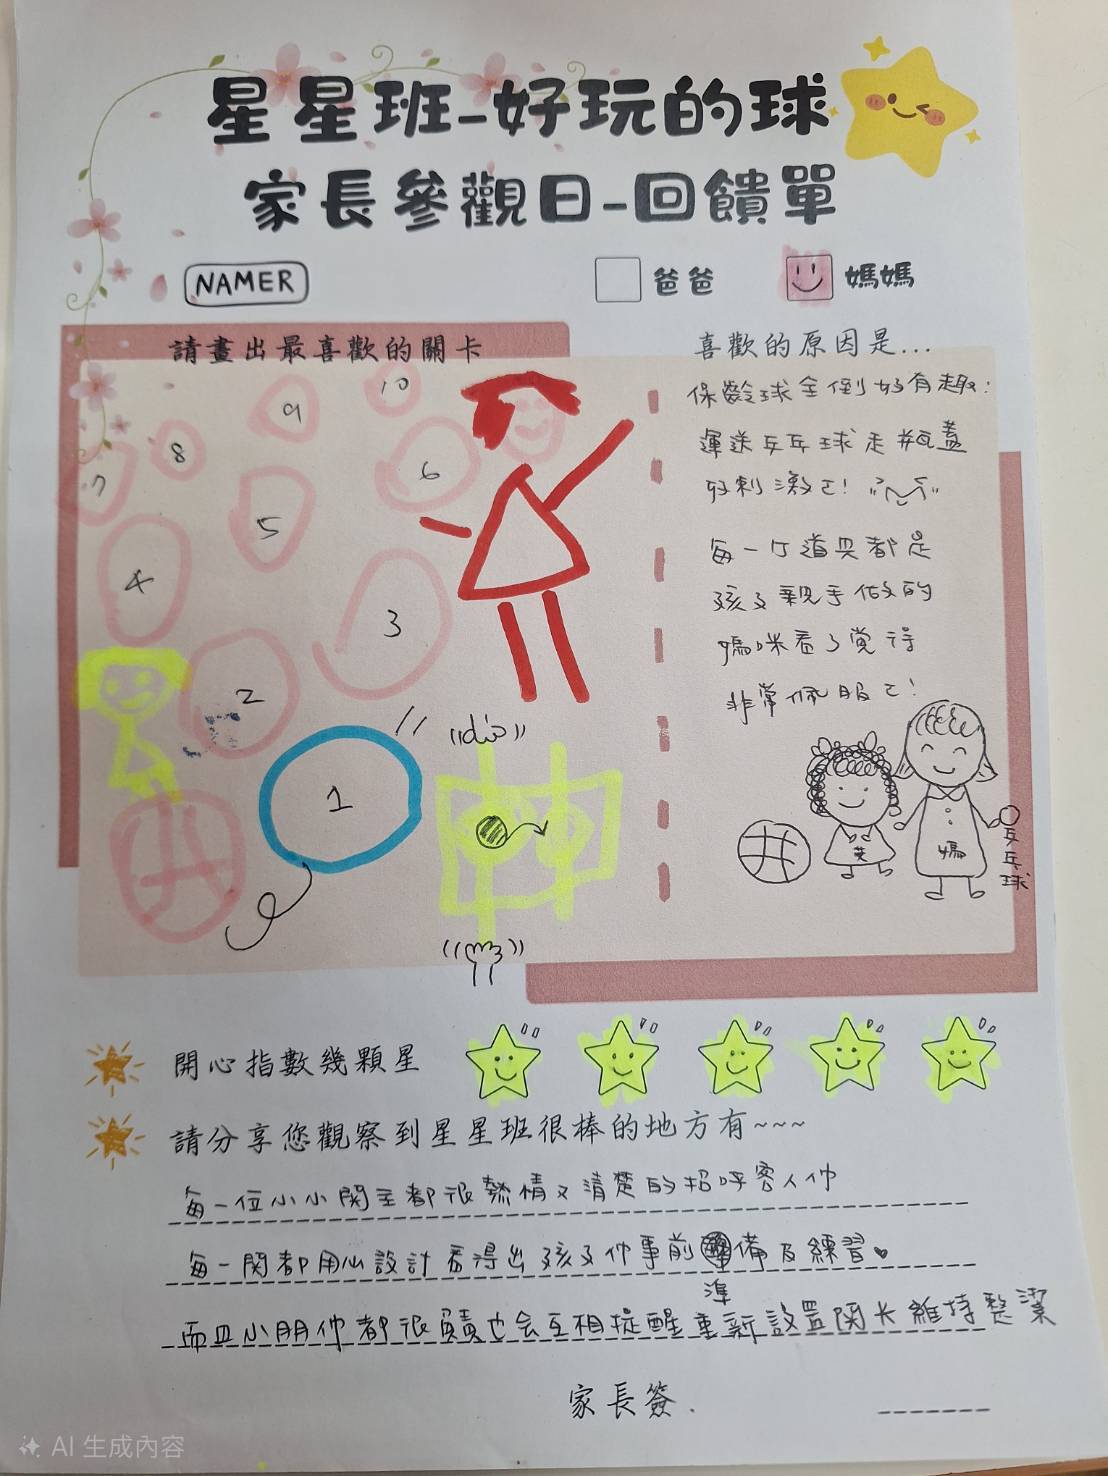 星星班-好玩的球
家長參觀日-回饋單
NAMER
爸爸
媽媽
請畫出最喜歡的關卡
10
9
8
7
6
5
4
3
2
1
喜歡的原因是...
保齡球全倒好有趣!
運送乒乓球走瓶蓋
好刺激ㄛ!
每一个道具都是
孩子親手做的
媽咪看了覺得
非常佩服ㄛ!
媽
乒乓球
開心指數幾顆星
請分享您觀察到星星班很棒的地方有~~~
每一位小小関主都很熱情又清楚的招呼客人們
每一関都用心設計看得出孩子们事前備及練習
準
而且小朋们都很負責也会互相提醒重新設置関卡維持整潔
家長簽.
AI 生成內容